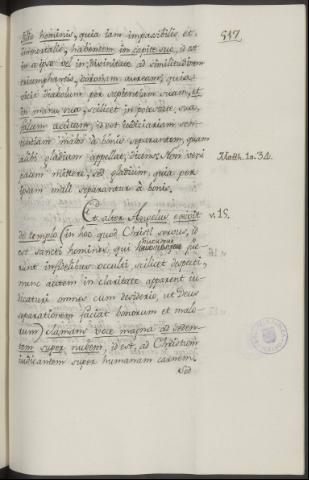 filio hominis, quia jam impassibilis et
immortalis; habentem in capite suo, id est
in se ipso vel in Divinitate ad similitudinem
triumphantis, coronam auream, quia
vicit diabolum per sapientiam suam, et
in manu sua, scilicet in potestate sua,
falcem acutam, id est judiciariam sen-
tentiam malos à bonis separantem, quam
alibi gladium appellat, dicens: Non veni
pacem mittere, sed gladium, quia per
ipsam mali separantur à bonis.
Et alter Angelus exivit
de templo (in hoc quod Christi servus, id
est sancti homines, qui hucusque fue-
runt infidelibus occulti scilicet despecti,
nunc autem in claritate apparent ju-
dicaturi omnes cum desiderio, ut Deus
separationem faciat bonorum et malo-
rum) clamans voce magna ad seden-
tem super nubem, id est, ad Christum
judicantem super humanam carnem.
Sed
517.
Matth. 10. 34.
v. 15.